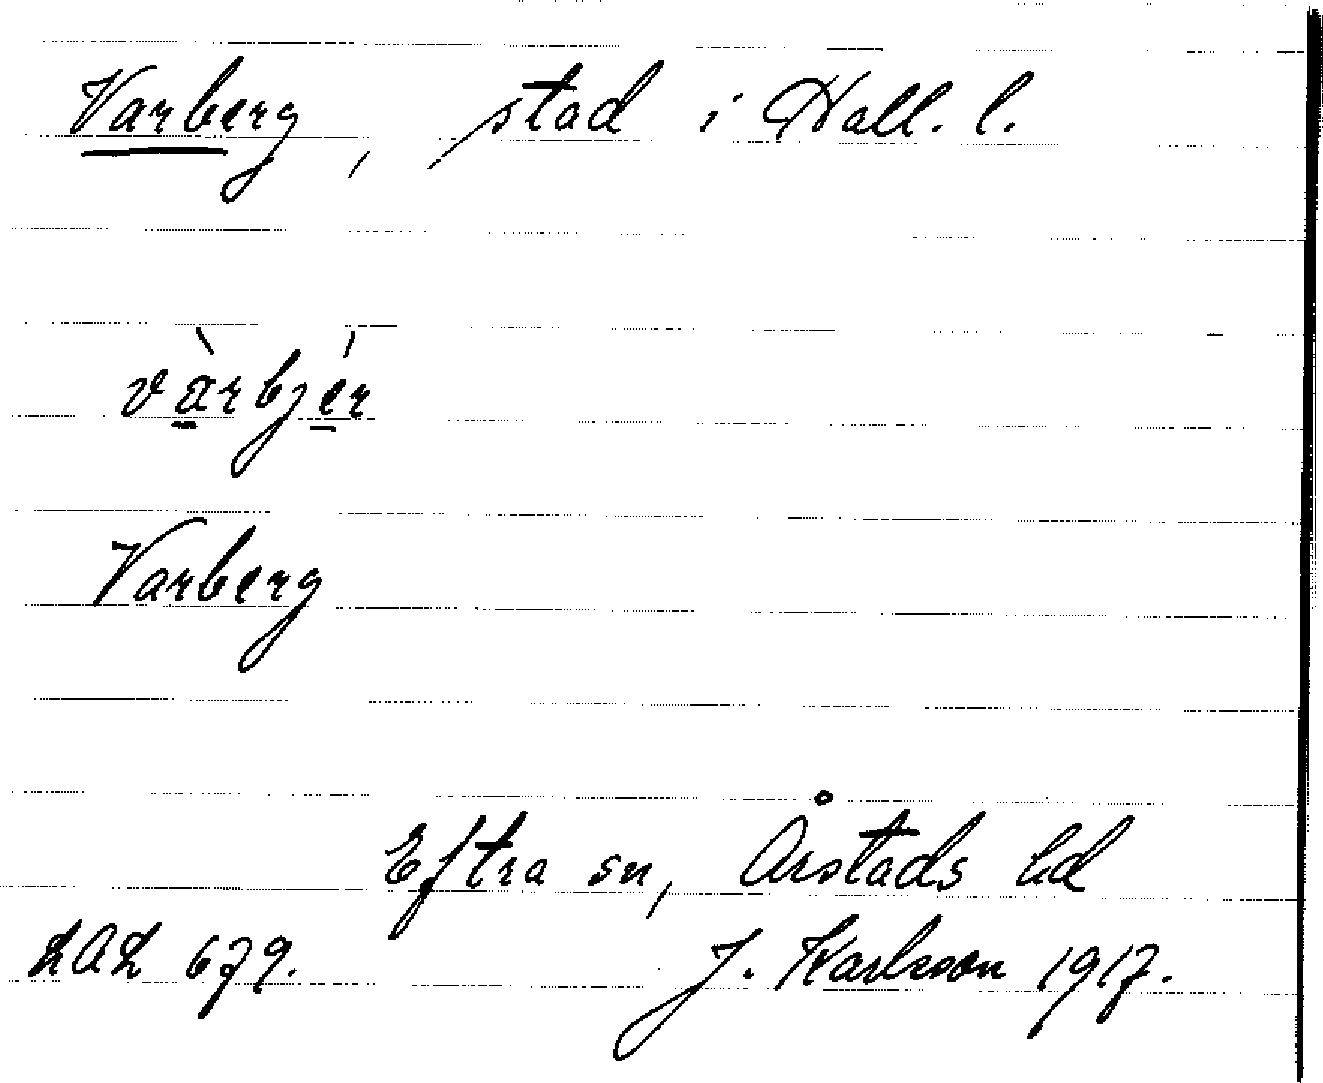 Varberg, stad i Hall. l.
vàrbjér
Varberg
Eftra sn, Årstads hd
LAL 679. J. Karlsson 1917.